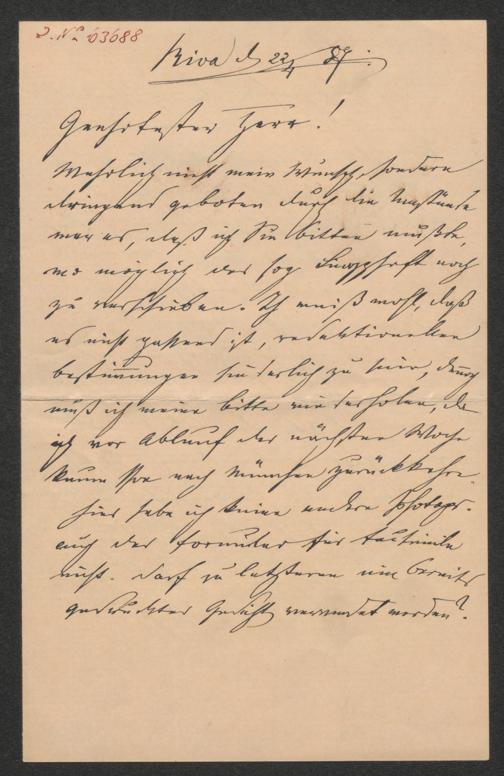 J. Nº 63688
Riva d 22/4 89.
Geehrtester Herr!
Wahrlich nicht mein Wunsch, sondern
dringend geboten durch die Umstände
war es, daß ich Sie bitten mußte,
wo möglich das sog. heft noch
zu verschieben. Ich weiß wohl, daß
es nicht passend ist, redaktionellen
Bestimmungen hinderlich zu sein, dennoch
muß ich meine Bitte wiederholen, da
ich vor Ablauf der nächsten Woche
kaum nach München zurückkehre.
Hier habe ich keine andere Photogr.
auch das Formular für Facsimile
nicht. Darf zu letzterem ein bereits
gedrucktes Gedicht verwendet werden?